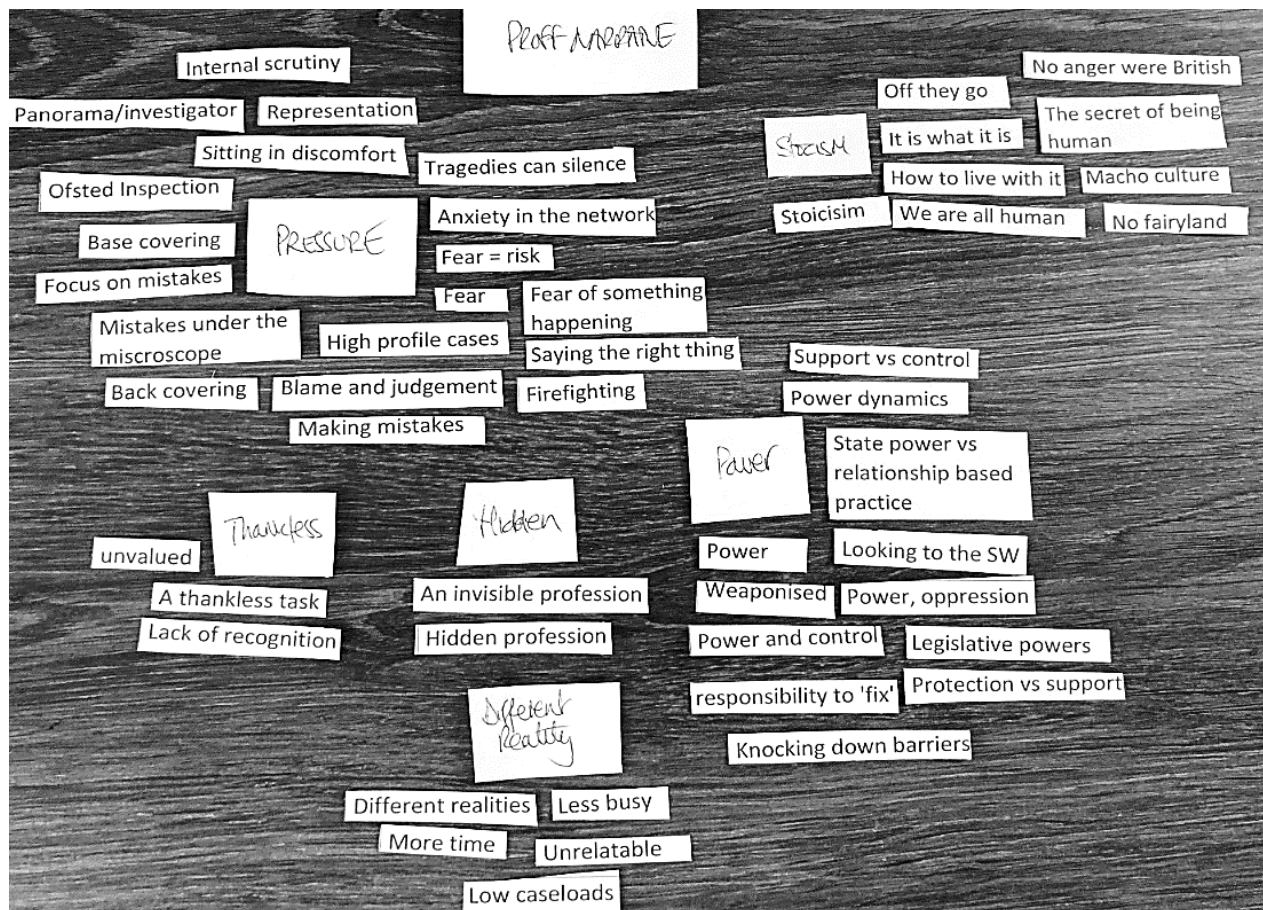 PROFF NARRATIVE
Internal scrutiny
Panorama/investigator
Representation
Sitting in discomfort
Tragedies can silence
Ofsted Inspection
PRESSURE
Anxiety in the network
Base covering
Fear = risk
Focus on mistakes
Fear
Fear of something
happening
Mistakes under the
miscroscope
High profile cases
Saying the right thing
Back covering
Blame and judgement
Firefighting
Making mistakes
No anger were British
Off they go
The secret of being
human
Stocism
It is what it is
How to live with it
Macho culture
Stoicisim
We are all human
No fairyland
Support vs control
Power dynamics
Power
State power vs
relationship based
practice
Power
Looking to the SW
Weaponised
Power, oppression
Power and control
Legislative powers
responsibility to 'fix'
Protection vs support
Knocking down barriers
Thankless
unvalued
A thankless task
Lack of recognition
Hidden
An invisible profession
Hidden profession
Different
Reality
Different realities
Less busy
More time
Unrelatable
Low caseloads